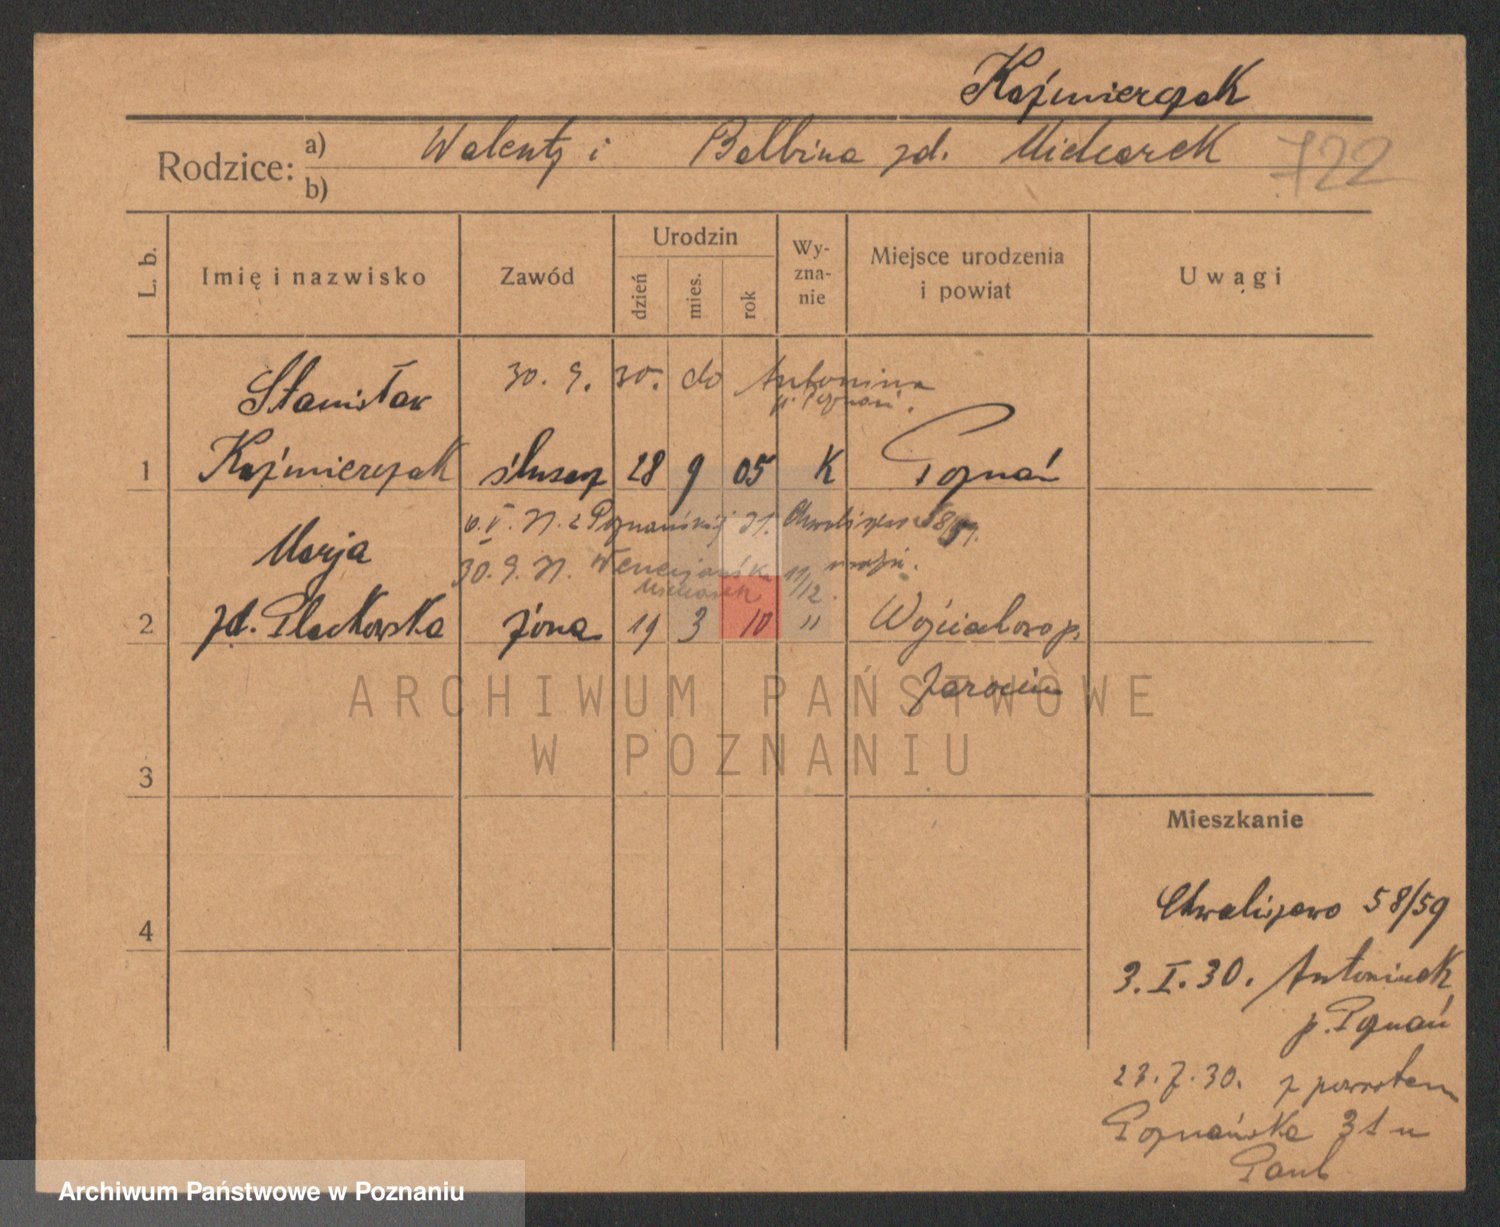 Kaźmierczak
Rodzice: a) Walenty i Balbina zd. Michcarek
b)
722
L. b.
Imię i nazwisko
Zawód
Urodzin
dzień
mies.
rok
Wy-
zna-
nie
Miejsce urodzenia
i powiat
Uwagi
30. 9. 30. do Antonina
p. Poznań.
Stanisław
1 Kaźmierczak ślusarz 28 9 05 K Poznań
6.V. 31. z Poznańskiej 31. Chwaliszewo 58/59.
Marja
30. 9. 31. Wenecjańska 11/12.
2 zd. Plackowska żona 19 3 10 " Wojciechowo p.
Jarocin
ARCHIWUM PAŃSTWOWE
W POZNANIU
3
Mieszkanie
4
Chwaliszewo 58/59
3. I. 30. Antoninek
p. Poznań
23. 7. 30. z powrotem
Poznańska 31 u
Archiwum Państwowe w Poznaniu